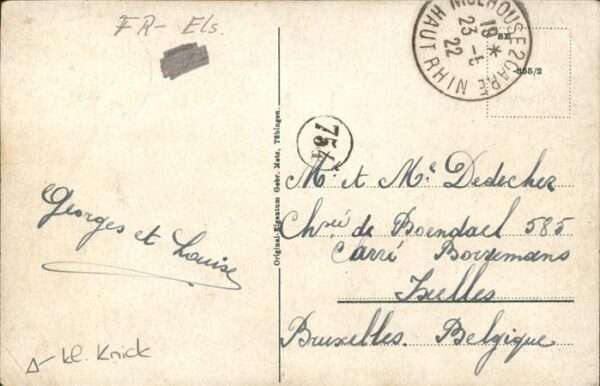 FR- Els.
MULHOUSE 2 GARE
19 *
23 -5
22
HAUT RHIN
-355/2
754
Original-Eigentum Gebr. Metz, Tübingen.
Mr et Me Dedecher
Chsée de Boendael 585
Carré Borremans
Ixelles
Bruxelles. Belgique
Georges et Louise
kl. Knick